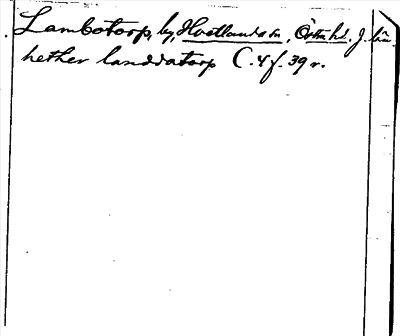 Lambotorp, by, Hvetlanda sn, Östra hd. J. län.
hether landdatorp C. 4 f. 39 r.